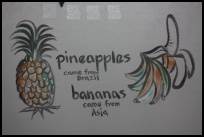 pineapples
came from
Brazil
bananas
came from
Asia